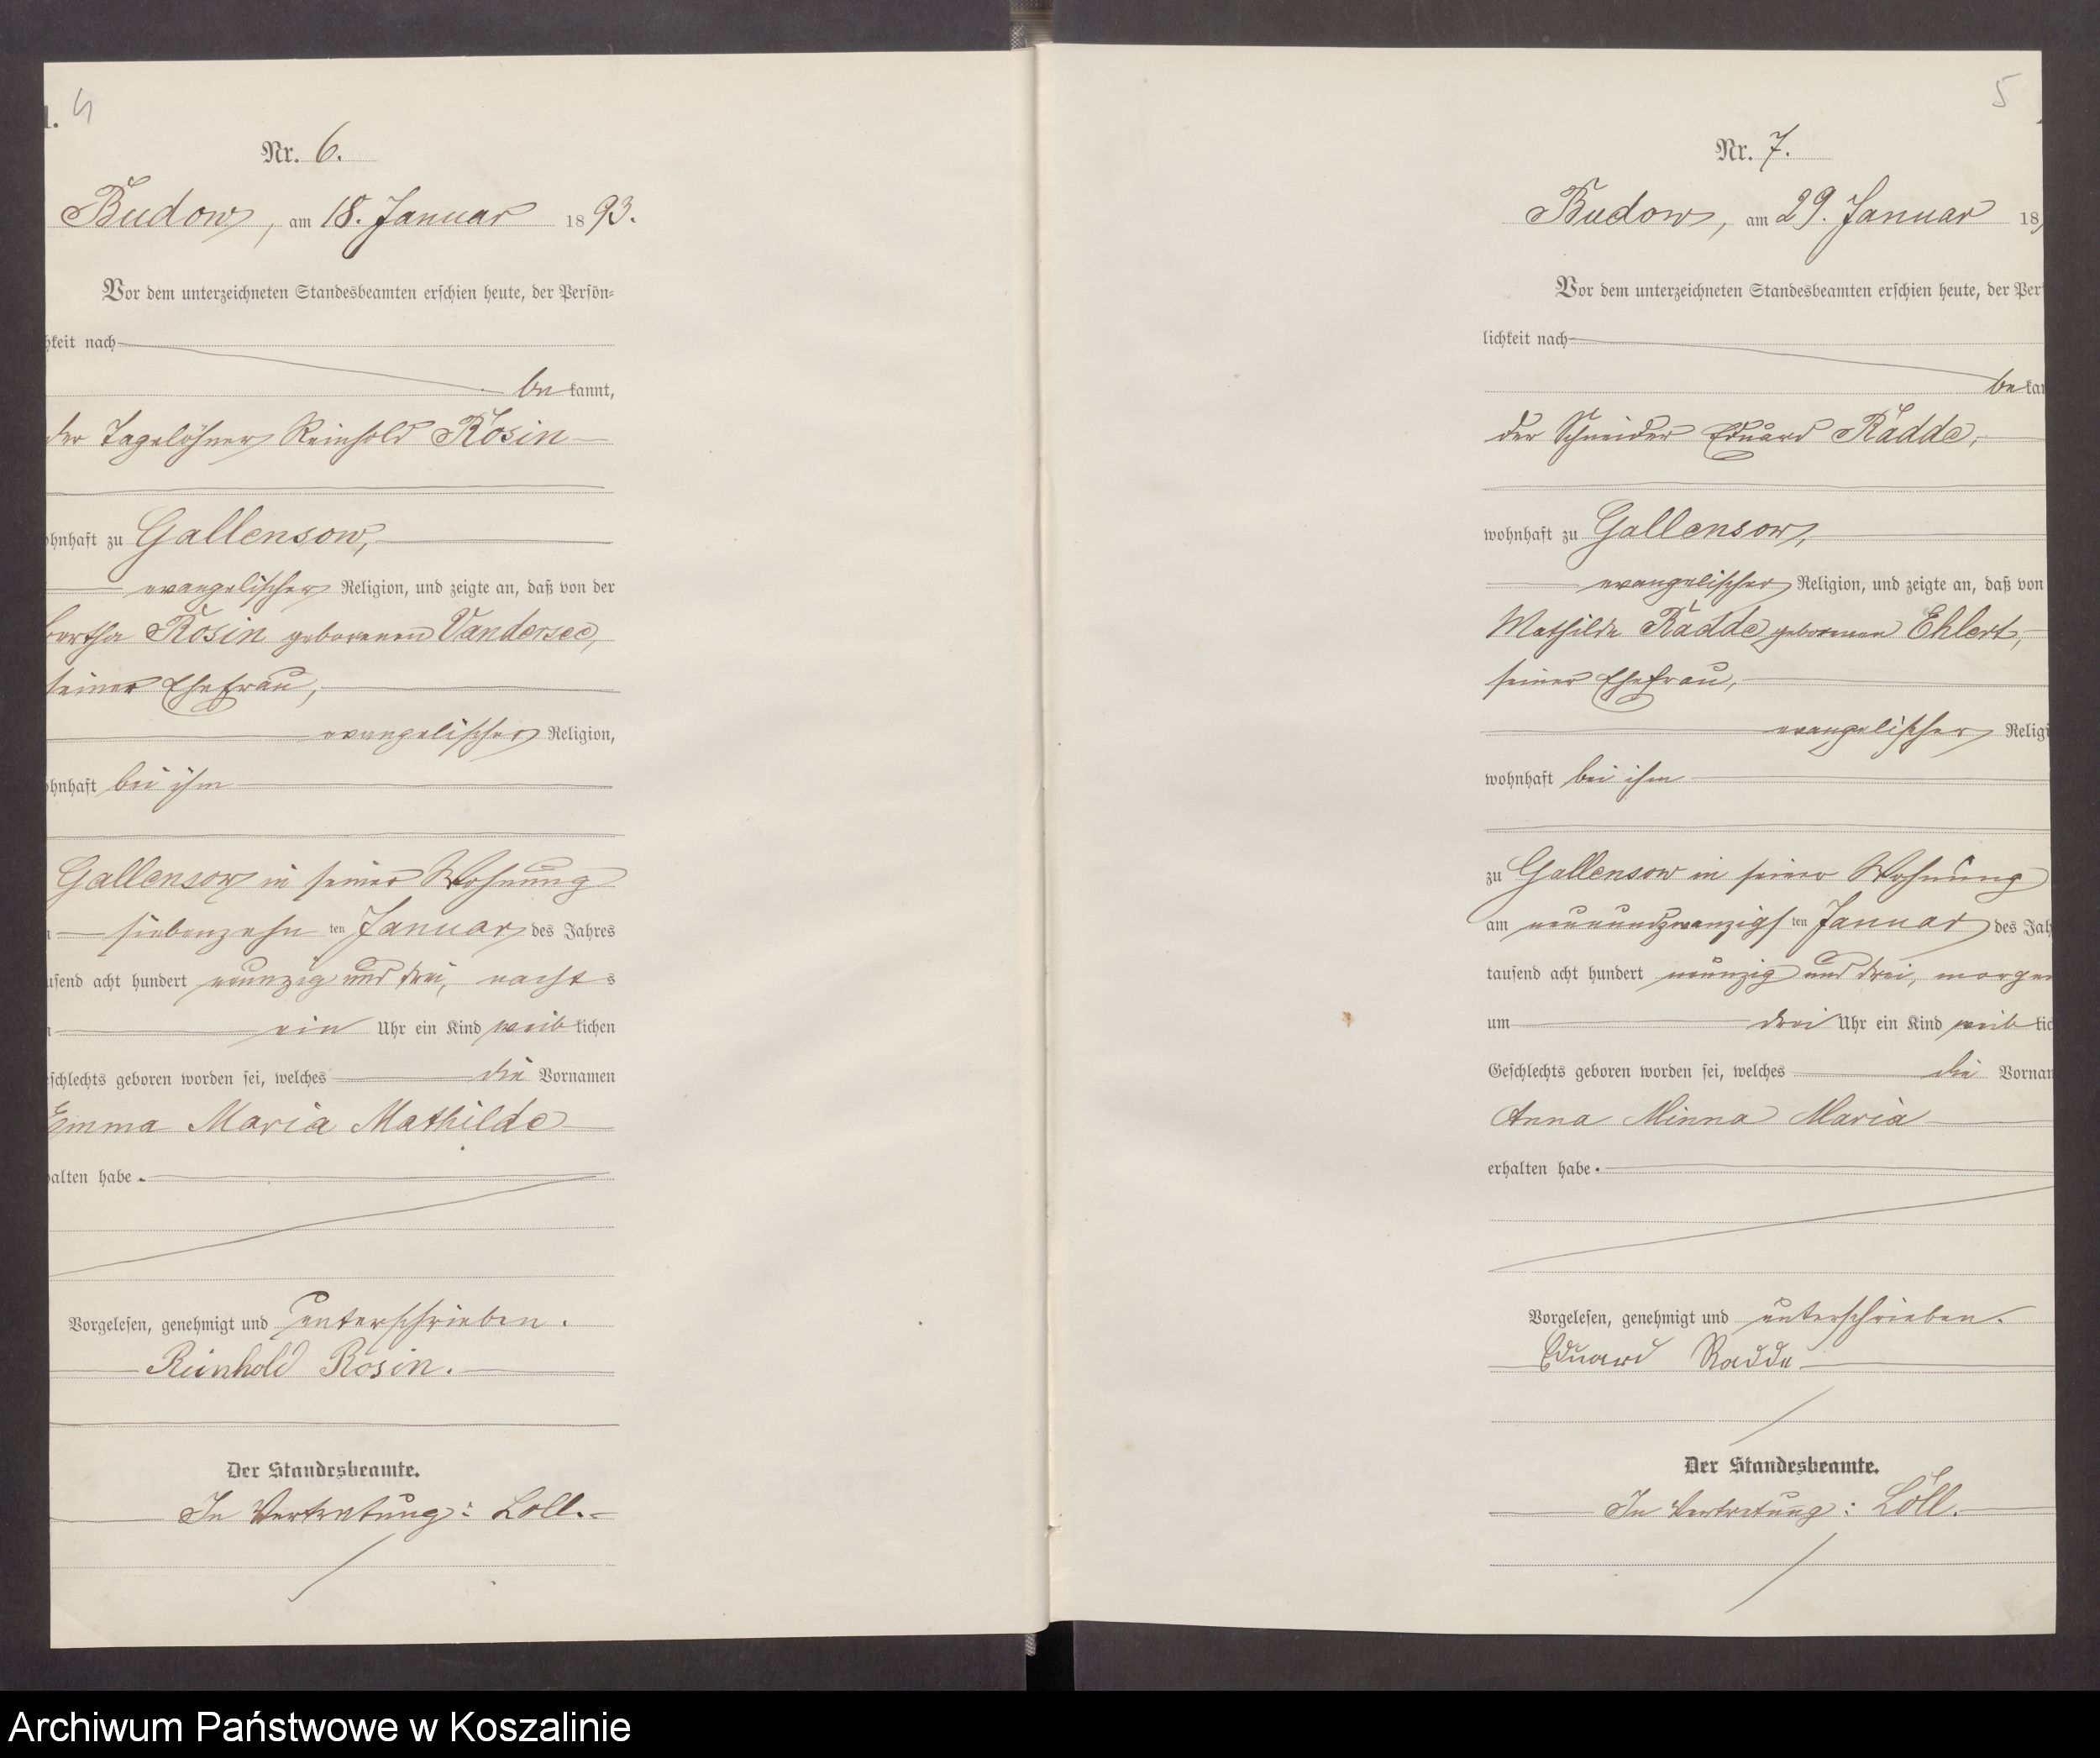 4
Nr. 6.
Budow, am 18. Januar 1893.
Vor dem unterzeichneten Standesbeamten erschien heute, der Persön-
hkeit nach
be kannt,
der Tagelöhner Reinhold Rosin
ohnhaft zu Gallensow,
evangelischer Religion, und zeigte an, daß von der
Bertha Rosin geborenen Vandersee,
seiner Ehefrau,
evangelischer Religion,
ohnhaft bei ihm
Gallensow in seiner Wohnung
siebenzehn ten Januar des Jahres
usend acht hundert neunzig und drei, nachts
ein Uhr ein Kind weib lichen
eschlechts geboren worden sei, welches die Vornamen
Emma Maria Mathilde
alten habe.
Vorgelesen, genehmigt und unterschrieben.
Reinhold Rosin.
Der Standesbeamte.
In Vertretung: Loll.
5
Nr. 7.
Budow, am 29. Januar 18
Vor dem unterzeichneten Standesbeamten erschien heute, der Per
lichkeit nach
be kan
der Schneider Eduard Radde,
wohnhaft zu Gallensow,
evangelischer Religion, und zeigte an, daß von
Mathilde Radde geborenen Ehlert,
seiner Ehefrau,
evangelischer Religi
wohnhaft bei ihm
zu Gallensow in seiner Wohnung
am neunundzwanzigs ten Januar des Jah
tausend acht hundert neunzig und drei, morgen
um drei Uhr ein Kind weib lic
Geschlechts geboren worden sei, welches die Vornam
Anna Minna Maria
erhalten habe.
Vorgelesen, genehmigt und unterschrieben.
Eduard Radde
Der Standesbeamte.
In Vertretung: Löll.
Archiwum Państwowe w Koszalinie